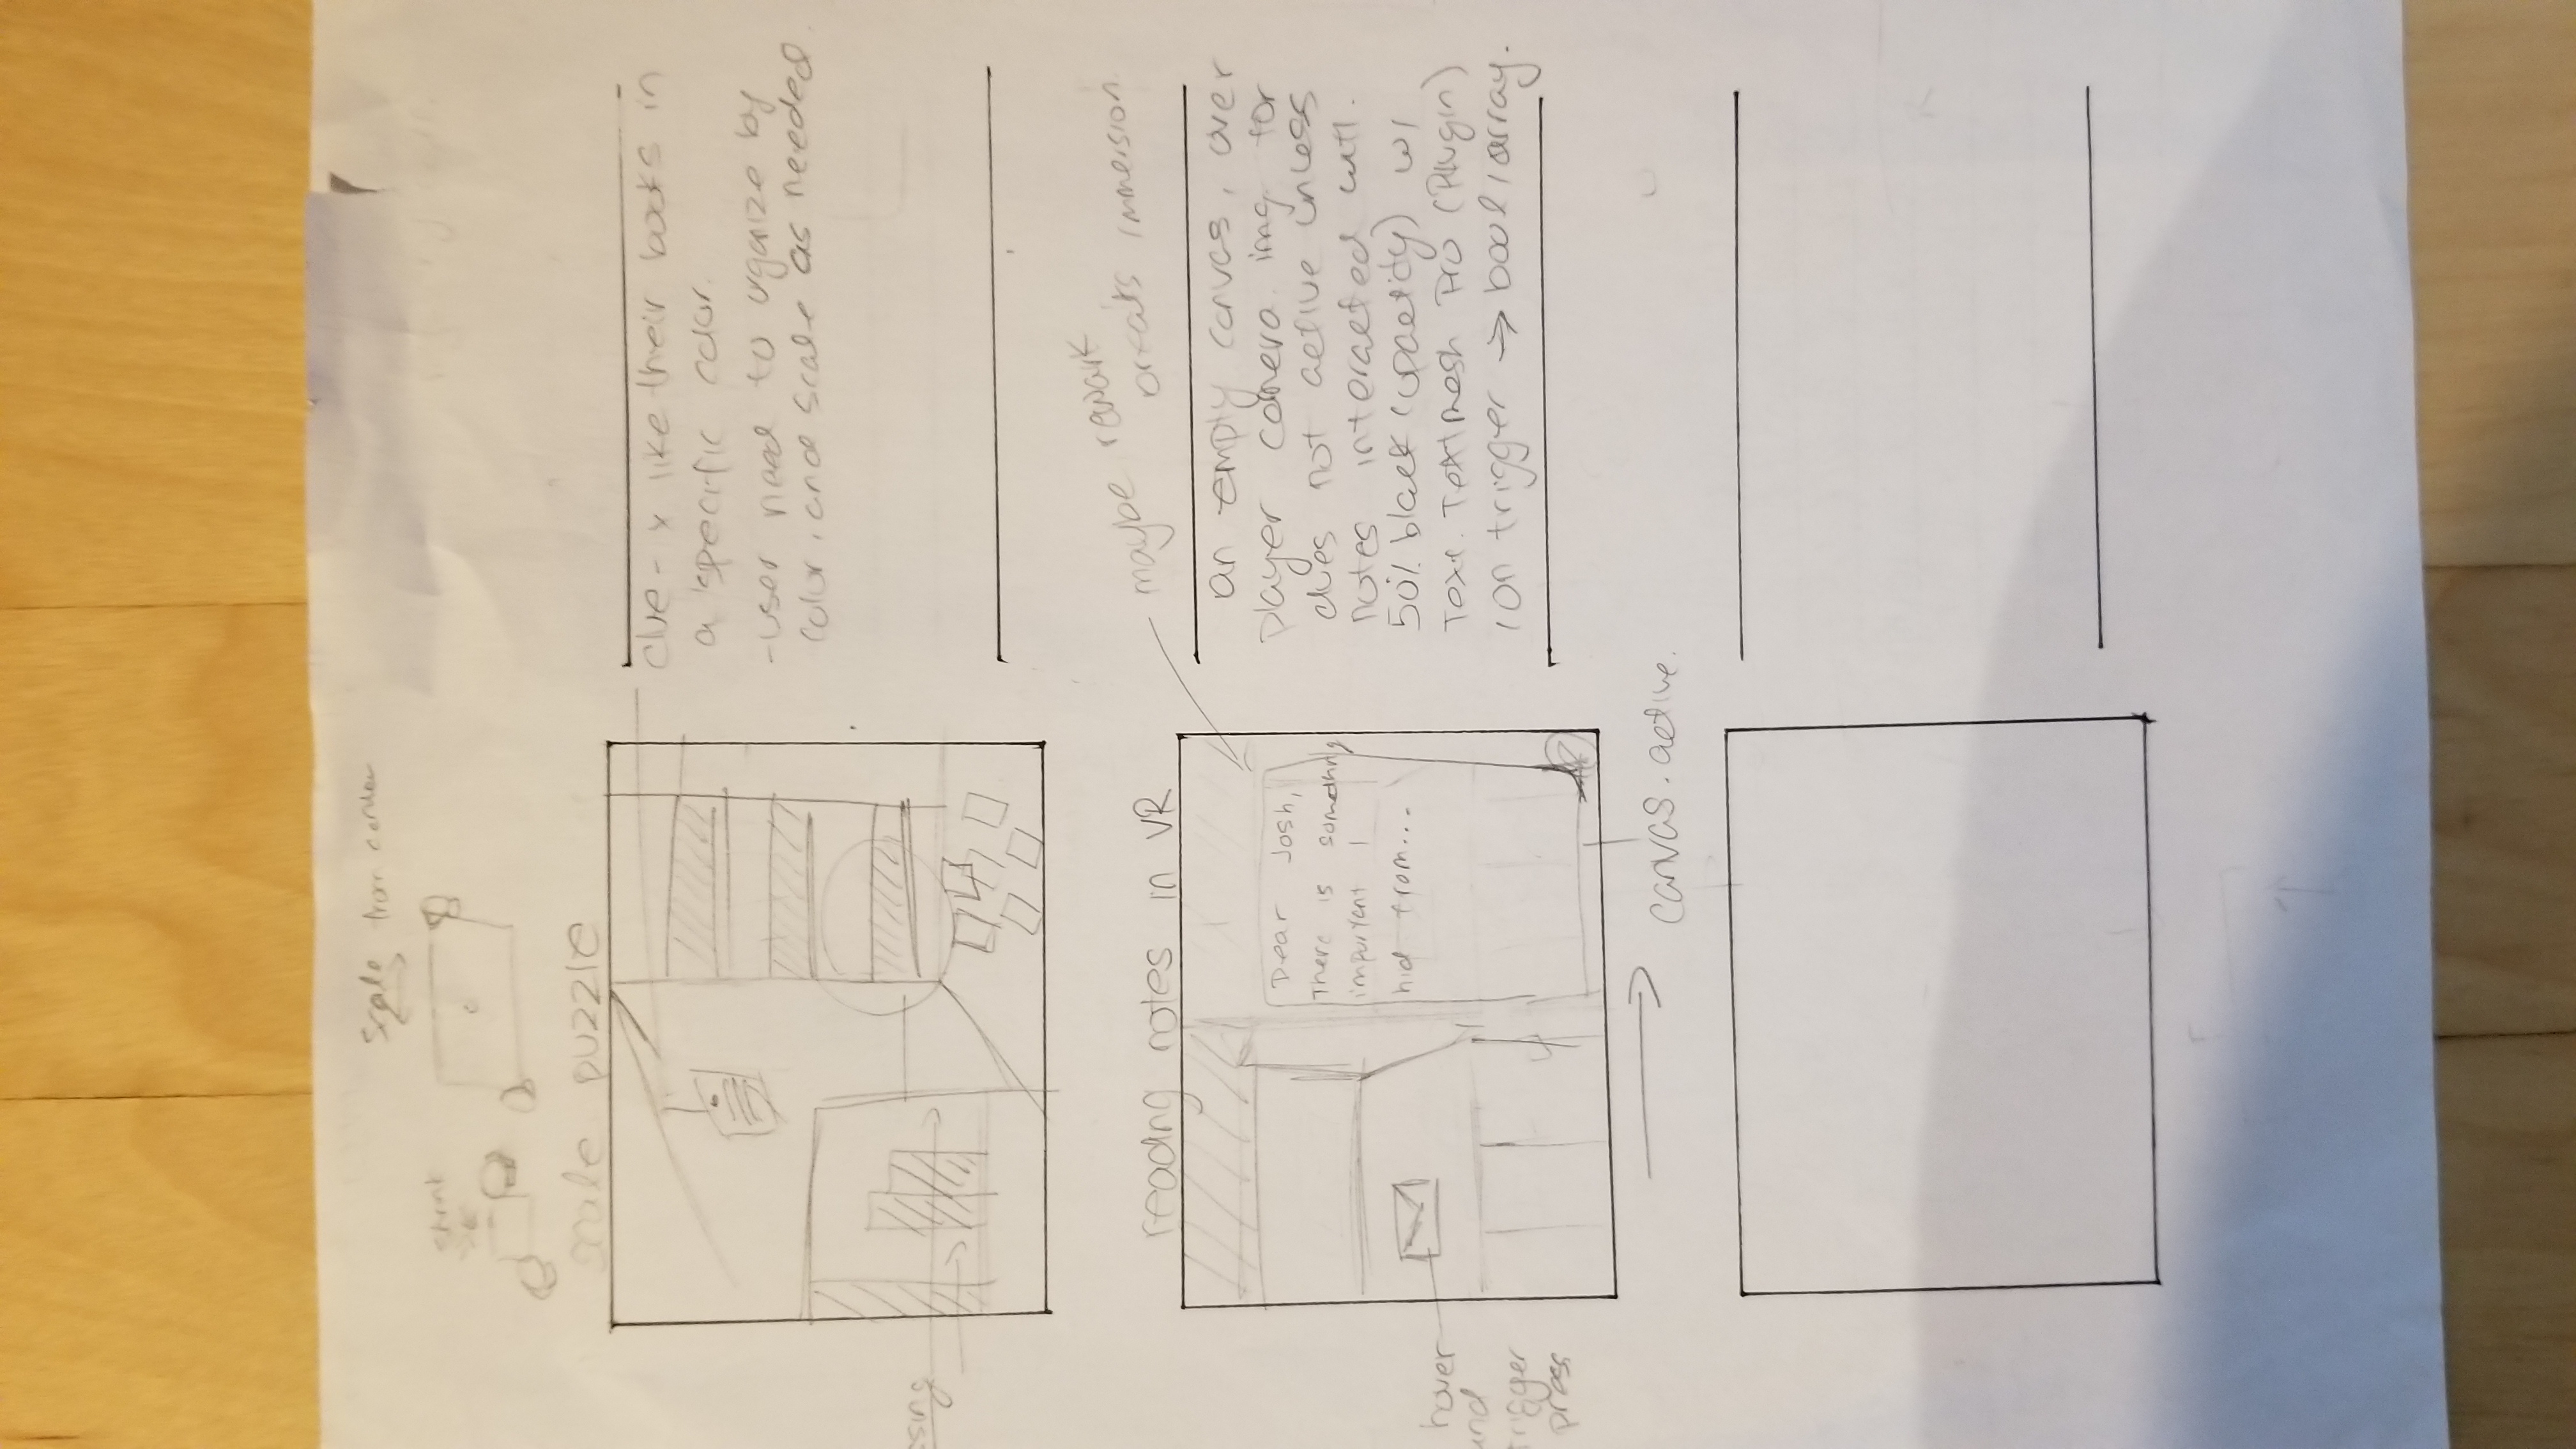 scale from center
shrink
scale puzzle
clue - x like their books in
a specific color.
- user need to organize by
color, and scale as needed
maybe rework
breaks immersion
reading notes in VR
Dear Josh,
There is something
important I
hid from...
hover
and
trigger
press
an empty canvas, over
player camera img for
clues not active unless
notes interacted with.
50% black (opacity) w/
Text. TextMesh Pro (Plugin)
(on trigger → bool/array.
canvas.active.